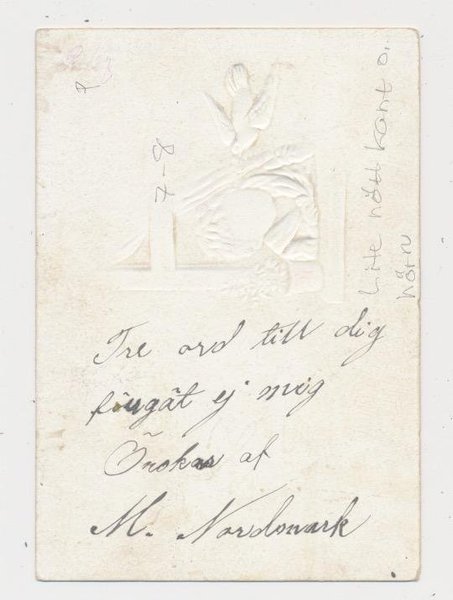 Tre ord till dig
förgät ej mig
Önskas af
M. Nordmark
7-8
Lite nött kant o.
hörn